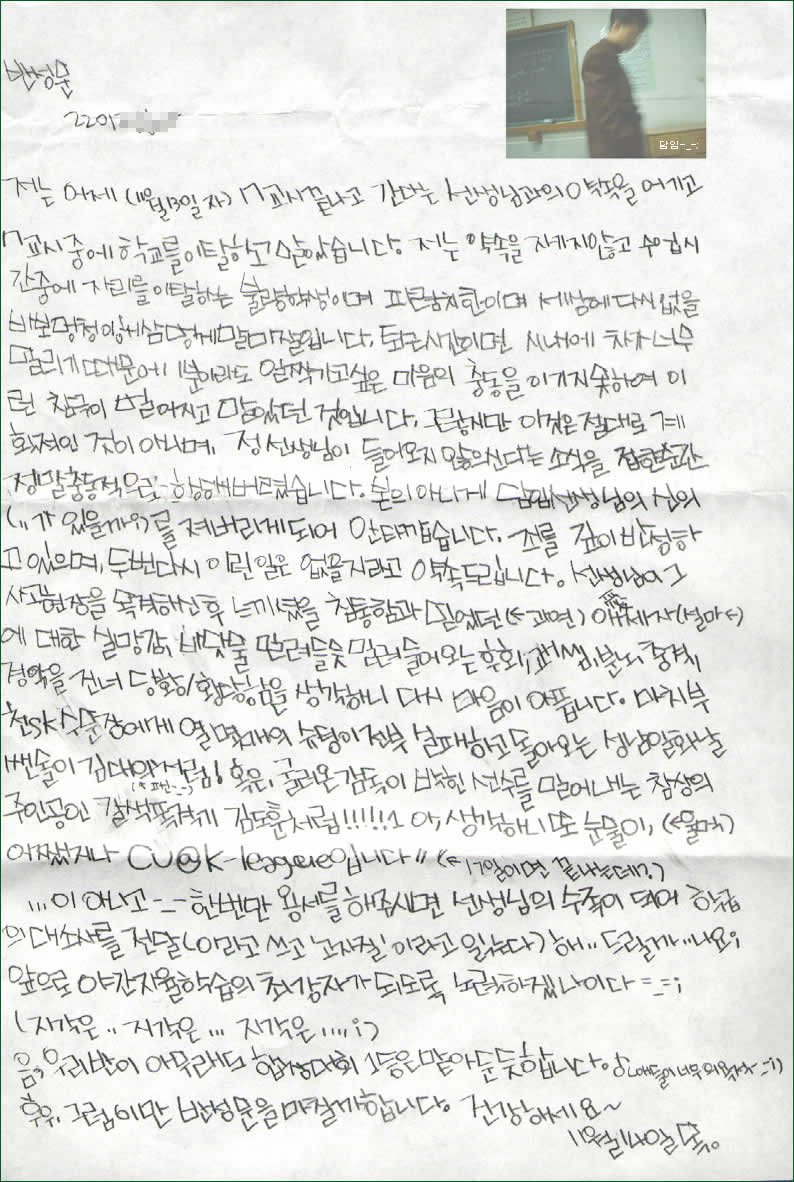 반성문
2201
담임-_-;
저는 어제 (11월13일자) 7교시끝나고 간다는 선생님과의 약속을 어기고
7교시 중에 학교를 이탈하고 말았습니다. 저는 약속을 지키지않고 수업시
간중에 자리를 이탈하는 불량학생이며 파렴치한이며 세상에 다시 없을
바보멍청이 말미잘입니다. 퇴근시간이면 시내에 차가 너무
밀리기때문에 1분이라도 일찍가고싶은 마음의 충동을 이기지못하여 이
런 참극이 벌어지고 말았던 것입니다. 그렇지만 이것은 절대로 계
획적인 것이 아니며, 정선생님이 들어오지 않으신다는 소식을 접한순간
정말충동적으로 행해버렸습니다. 본의 아니게 담임선생님의 신의
(가 있을까?)를 져버리게되어 안타깝습니다. 죄를 깊이 반성하
고 있으며, 두번다시 이런일은 없을지라고 약속드립니다. 선생님이 그
사고현장을 목격하신 후 느끼셨을 침통함과 믿었던(←과연) 애제자(설마←)
愛
에 대한 실망감, 바닷물 밀려들듯 밀려들어오는 후회, 분노, 충격,
경악을 건너 당황/황당함을 생각하니 다시 마음이 아픕니다. 마치 부
천SK 수문장에게 열 몇개의 슈팅이 전부 실패하고 돌아오는 성남일화 날
쌘돌이 김대의처럼! 혹은, 골리온 감독이 박힌 선수를 밀어내는 참상의
주인공인 갈색폭격기 김도훈처럼!!!!!!1 아, 생각하니 또 눈물이, (←울먹)
어쨌거나 CU@K-league입니다 (←17일이면 끝나는데?)
...이 아니고-_- 한번만 용서를 해주시면 선생님의 수족이 되어 학급
의 대소사를 전달(이라고 쓰고 '고자질'이라고 읽는다)해.. 드릴까..나요;
앞으로 야간자율학습의 최강자가 되도록 노력하겠나이다 =_=;
(지각은 .. 지각은 ... 지각은 ....;)
음, 우리반이 아무래도 합창대회 1등은 맡아둔듯합니다. (애들이 너무 의욕 -_-;)
후우, 그럼 이만 반성문을 마칠까합니다. 건강하세요~
11월14일